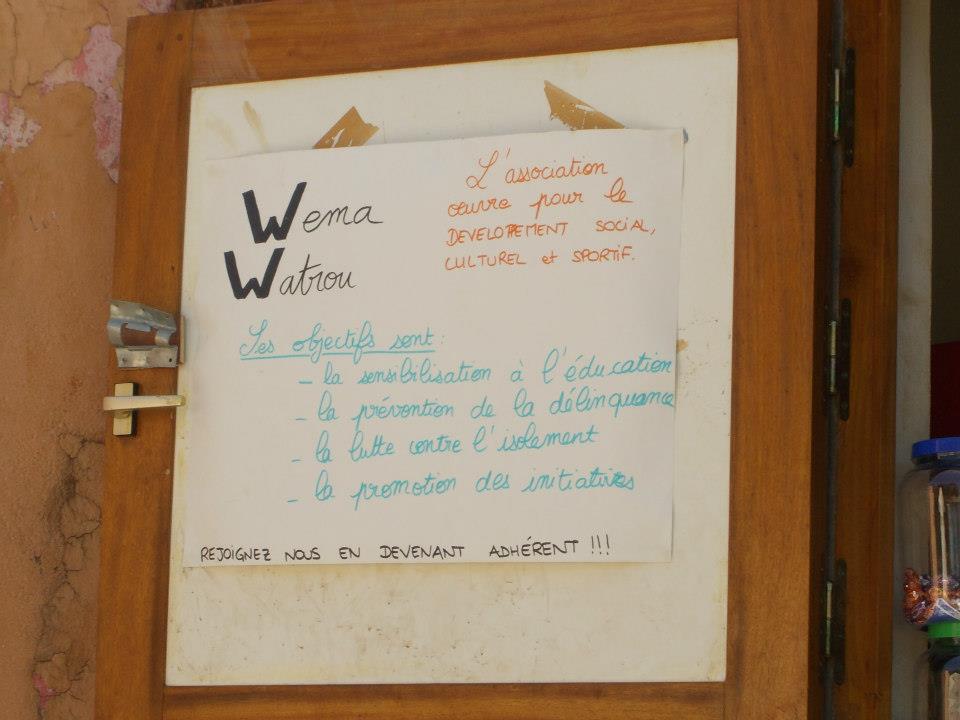 Wema
Watrou
L'association
œuvre pour le
DEVELOPPEMENT SOCIAL,
CULTUREL et SPORTIF.
Ses objectifs sont:
- la sensibilisation à l'éducation
- la prévention de la délinquance
- la lutte contre l'isolement
- la promotion des initiatives
REJOIGNEZ NOUS EN DEVENANT ADHÉRENT !!!